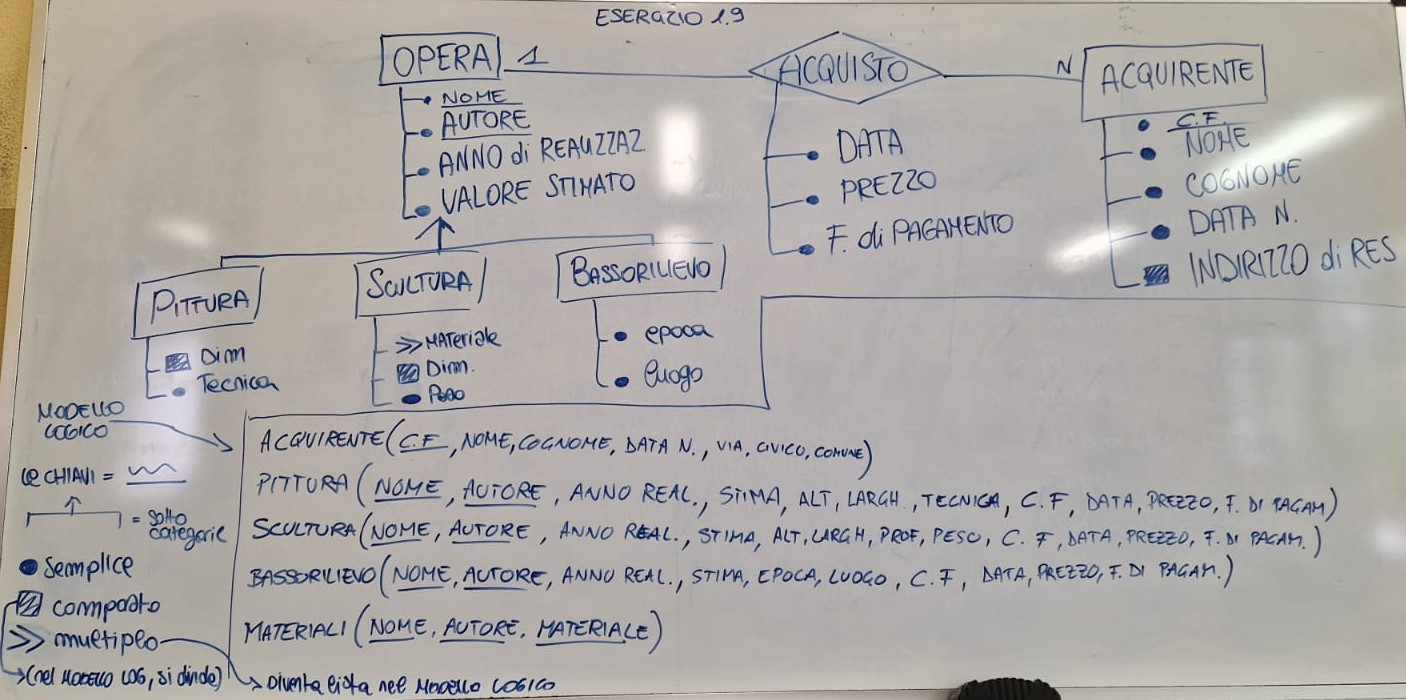 ESERCIZIO 1.9
OPERA 1 ACQUISTO N ACQUIRENTE
NOME
AUTORE
ANNO di REALIZZAZ
VALORE STIMATO
DATA
PREZZO
F. di PAGAMENTO
C.F.
NOME
COGNOME
DATA N.
INDIRIZZO di RES
PITTURA
Dim
Tecnica
SCULTURA
MATeriale
Dim.
Peso
BASSORILIEVO
epoca
luogo
MODELLO
LOGICO
LE CHIAVI =
= sotto
categorie
Semplice
composto
multiplo
(nel MODELLO LOG, si divide)
Diventa lista nel MODELLO LOGICO
ACQUIRENTE (C.F, NOME, COGNOME, DATA N., VIA, CIVICO, COMUNE)
PITTURA (NOME, AUTORE, ANNO REAL., STIMA, ALT, LARGH, TECNICA, C.F, DATA, PREZZO, F. DI PAGAM)
SCULTURA (NOME, AUTORE, ANNO REAL., STIMA, ALT, LARGH, PROF, PESO, C.F, DATA, PREZZO, F. DI PAGAM.)
BASSORILIEVO (NOME, AUTORE, ANNO REAL., STIMA, EPOCA, LUOGO, C.F, DATA, PREZZO, F. DI PAGAM.)
MATERIALI (NOME, AUTORE, MATERIALE)